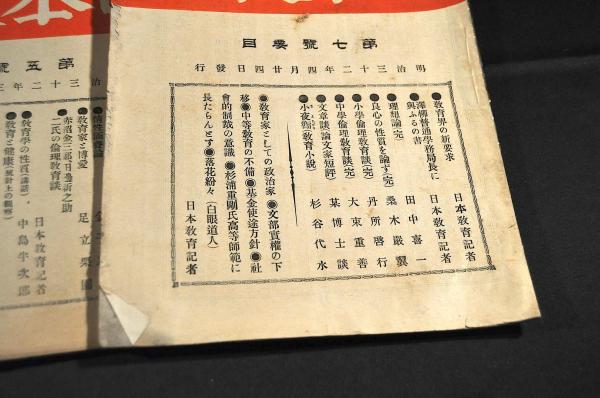 第七號要目
明治三十二年四月廿四日發行
●敎育界の新要求 日本敎育記者
●澤柳普通學務局長に與ふるの書 日本敎育記者
●理想論(完) 田中喜一
●良心の性質を論ず(完) 桑木嚴翼
●小學倫理敎育談(完) 丹所啓行
●中學倫理敎育談(完) 大束重善
●文章談論文家短評 某博士談
●小夜嵐(敎育小說) 杉谷代水
●敎育家としての政治家●文部實權の下
移●中等敎育の不備●基金使途方針●社
會的制裁の意議●杉浦重剛氏高等師範に
長たらんとす●落花紛々(白眼道人)
日本敎育記者
第五號
治三十二年三
●敎育家と博愛 足立栗園
●赤沼金三郞、日高新之助二氏の倫理敎育談 日本敎育記者
●敎育學の性質(講話) 中島半次郎
●敎育と健康(統計上の觀察)